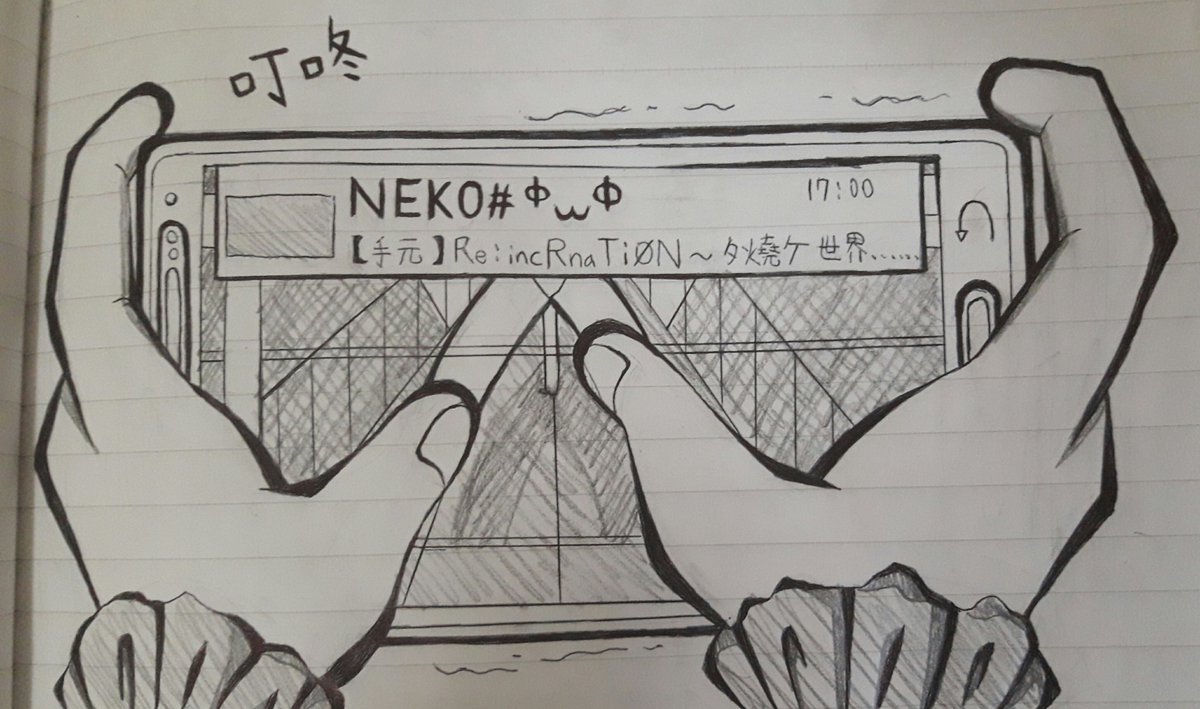 叮咚
NEKO#ΦωΦ
17:00
【手元】Re:incRnaTiØN～夕焼ケ世界……